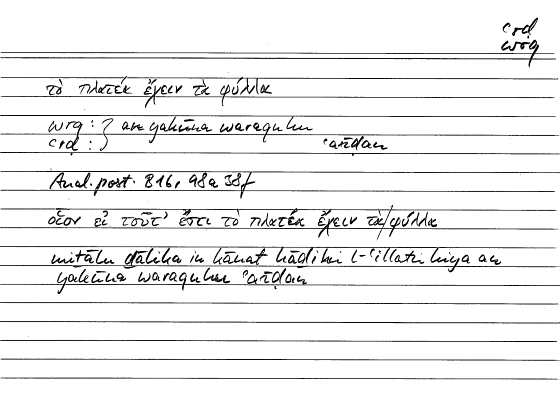 ʿrḍ
wrq
τὸ πλατέα ἔχειν τὰ φύλλα
wrq: } an yakūna waraquhu
ʿrḍ: } ʿarīḍan
Anal. post. B 16, 98a 38f
οἷον εἰ τοῦτ' ἔστι τὸ πλατέα ἔχειν τὰ/φύλλα
mitālu ḏālika in kānat hāḏihi l-ʿillatu hiya an
yakūna waraquhu ʿarīḍan